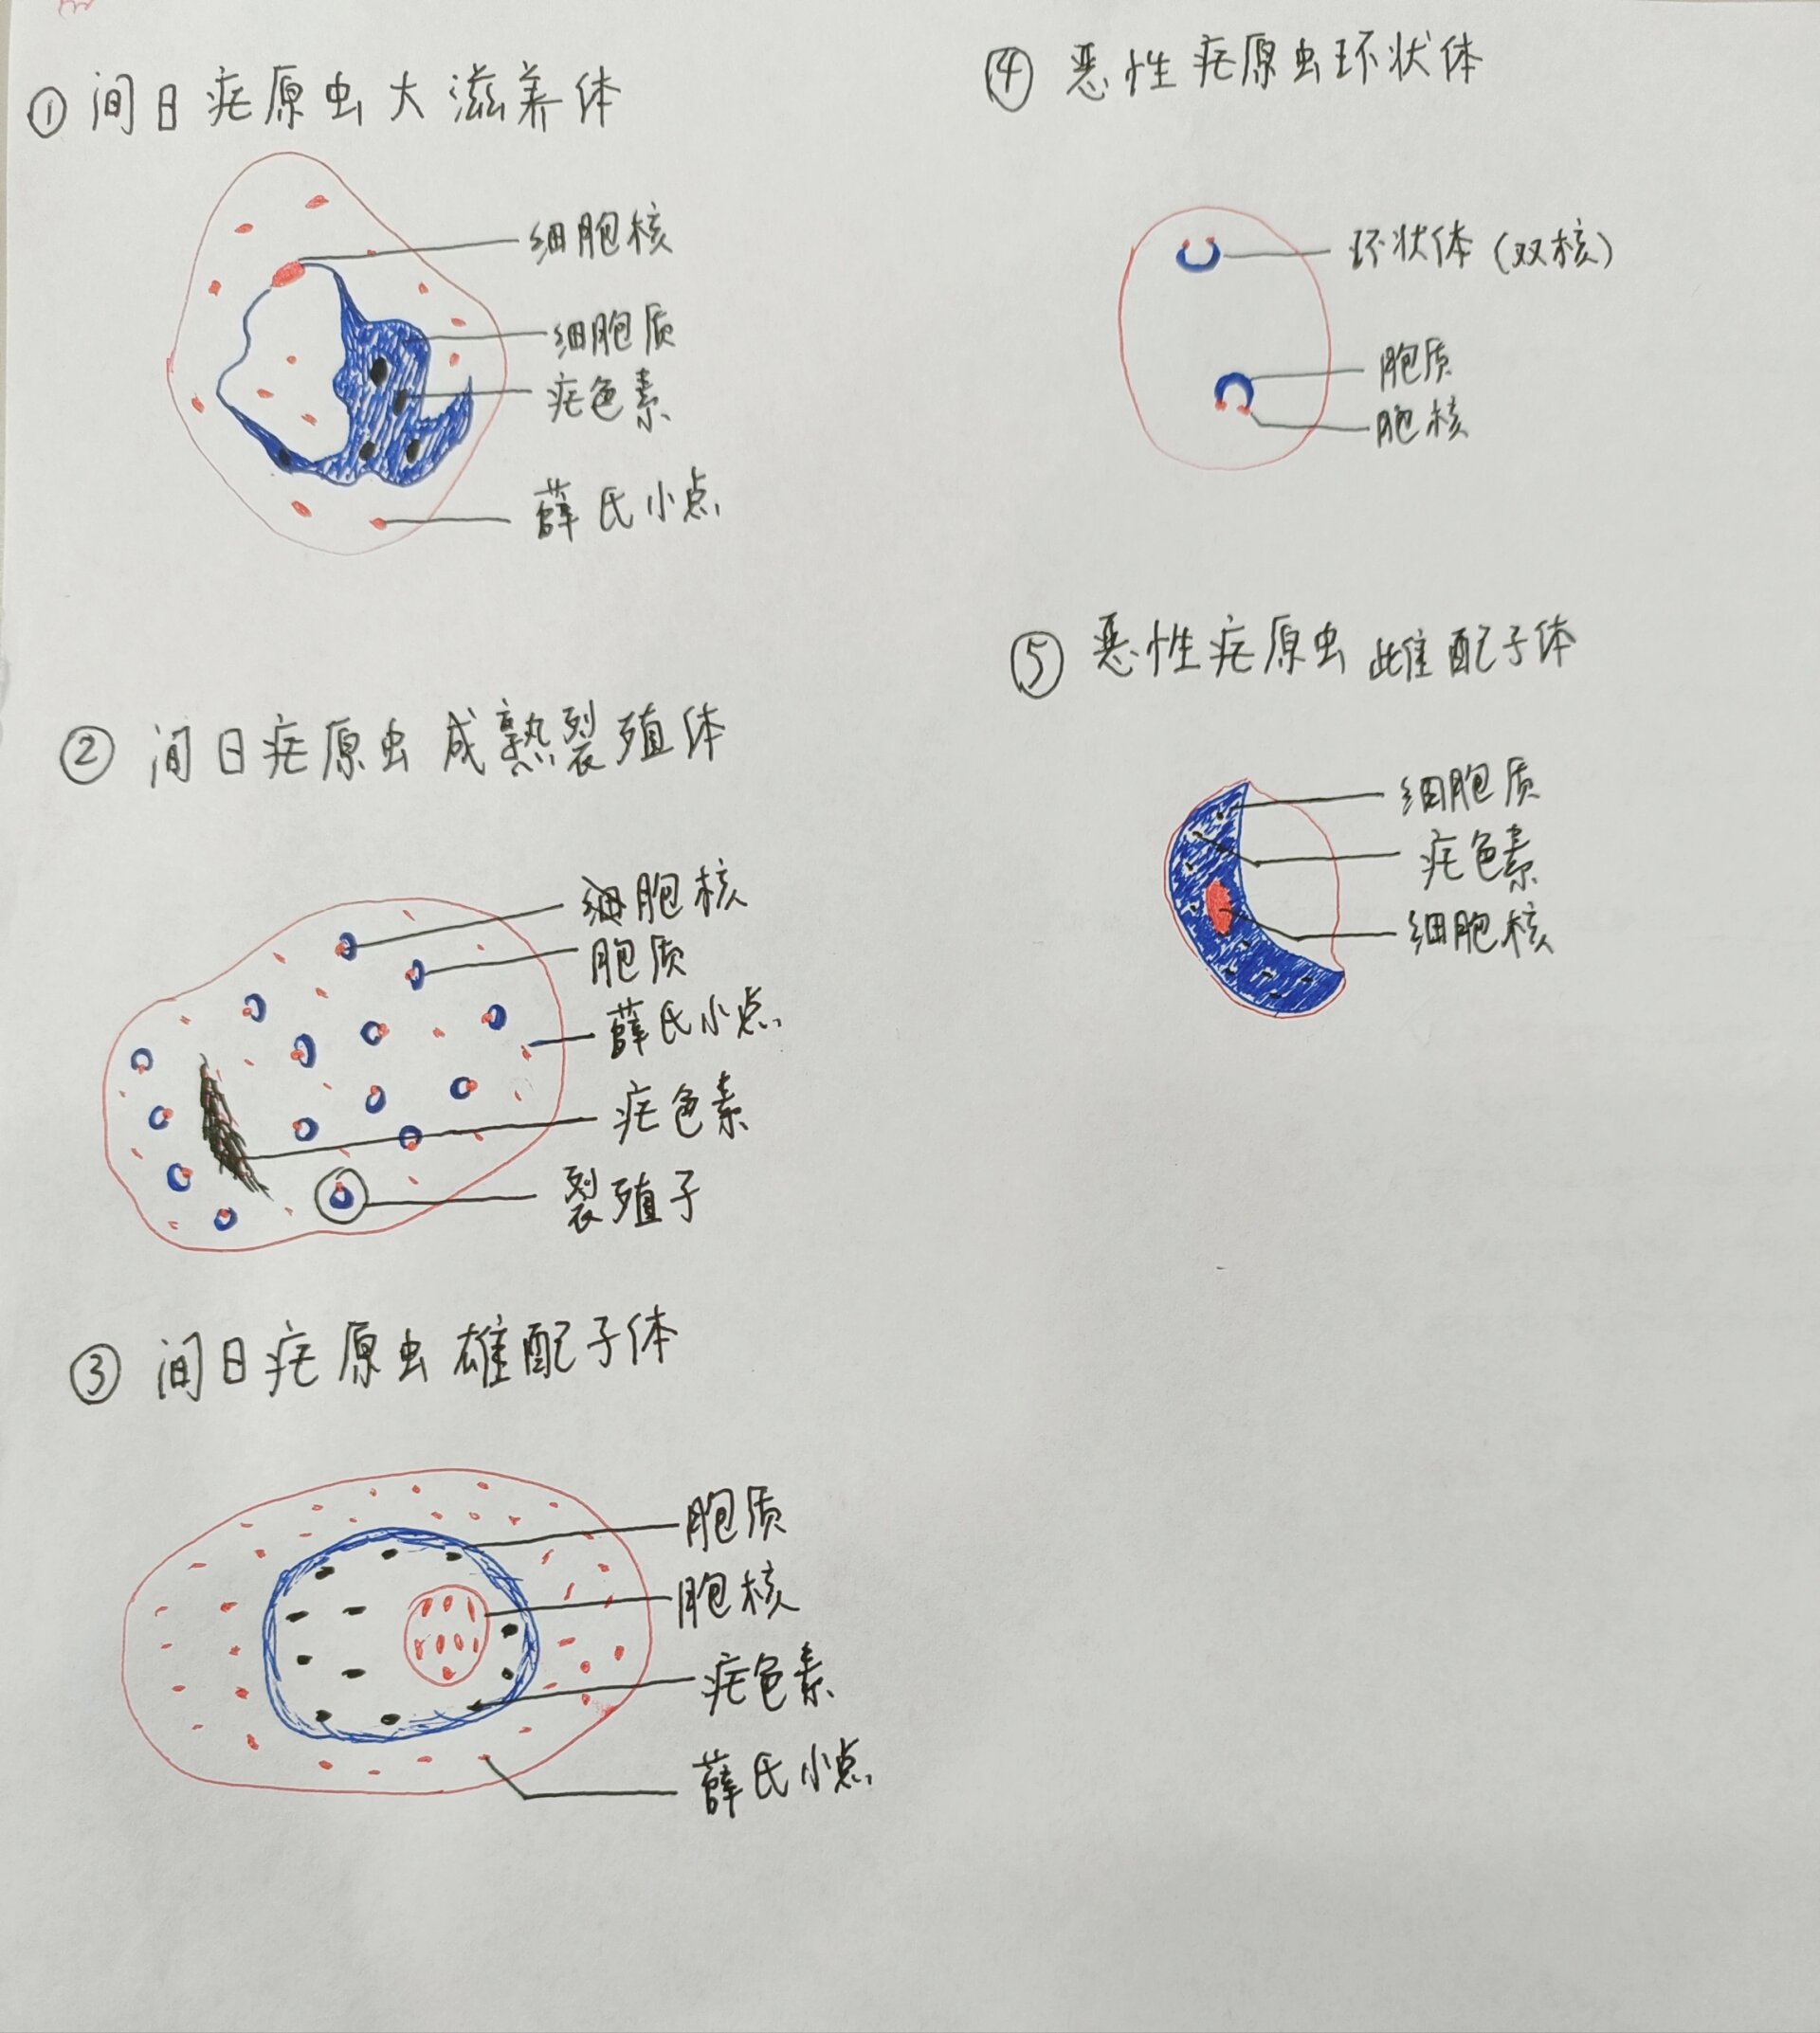 ① 间日疟原虫大滋养体
细胞核
细胞质
疟色素
薛氏小点
② 间日疟原虫成熟裂殖体
胞核
胞质
薛氏小点
疟色素
裂殖子
③ 间日疟原虫雄配子体
胞质
胞核
疟色素
薛氏小点
④ 恶性疟原虫环状体
环状体(双核)
胞质
胞核
⑤ 恶性疟原虫雌配子体
细胞质
疟色素
细胞核